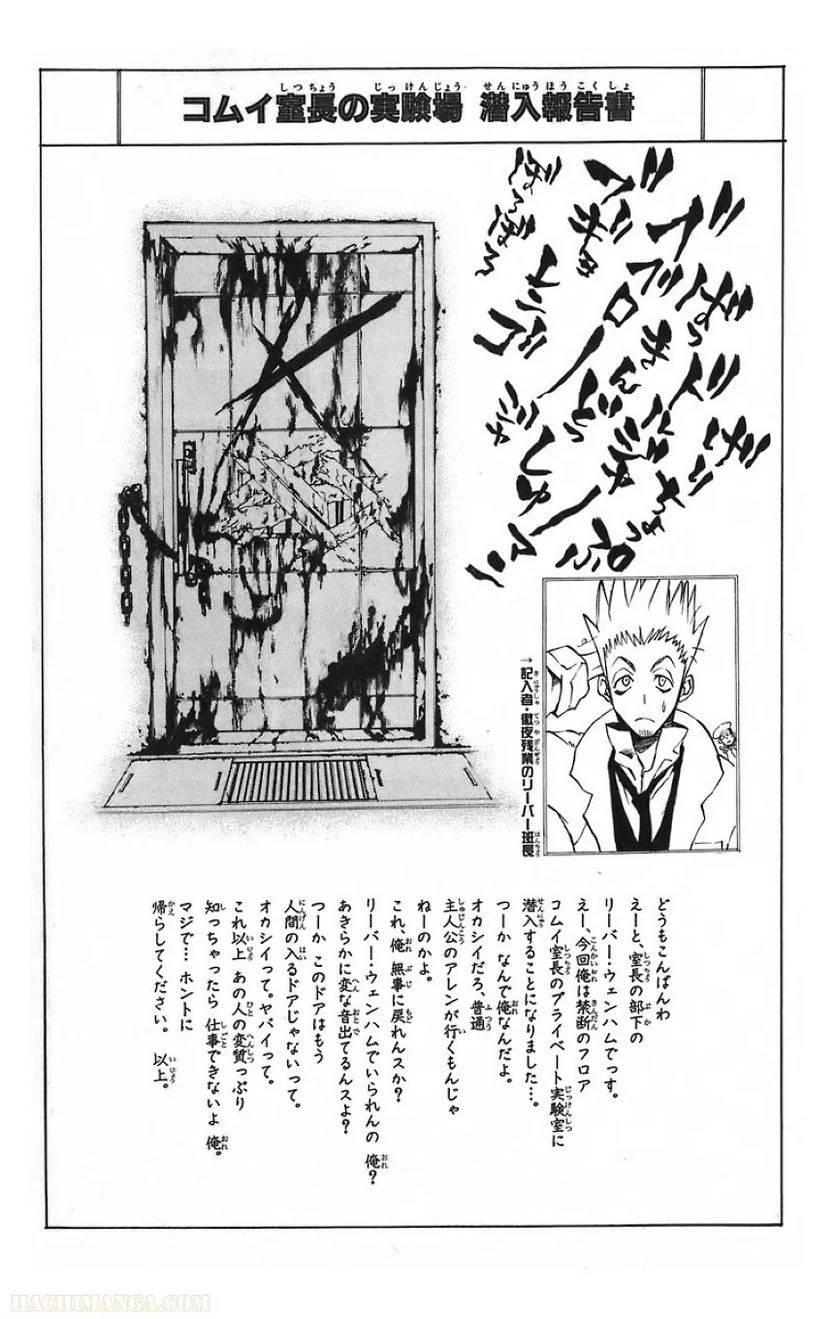 コムイ室長の実験場 潜入報告書
→記入者・徹夜残業のリーバー班長
どうもこんばんわ
えーと、室長の部下の
リーバー・ウェンハムでっす。
えー、今回俺は禁断のフロア
コムイ室長のプライベート実験室に
潜入することになりました…。
つーか なんで俺なんだよ。
オカシイだろ、普通
主人公のアレンが行くもんじゃ
ねーのかよ。
これ、俺 無事に戻れんスか?
リーバー・ウェンハムでいられんの 俺?
あきらかに変な音出てるんスよ?
つーか このドアはもう
人間の入るドアじゃないって。
オカシイって。ヤバイって。
これ以上 あの人の変質っぷり
知っちゃったら 仕事できないよ 俺。
マジで… ホントに
帰らしてください。 以上。
HACHIMANGA.COM